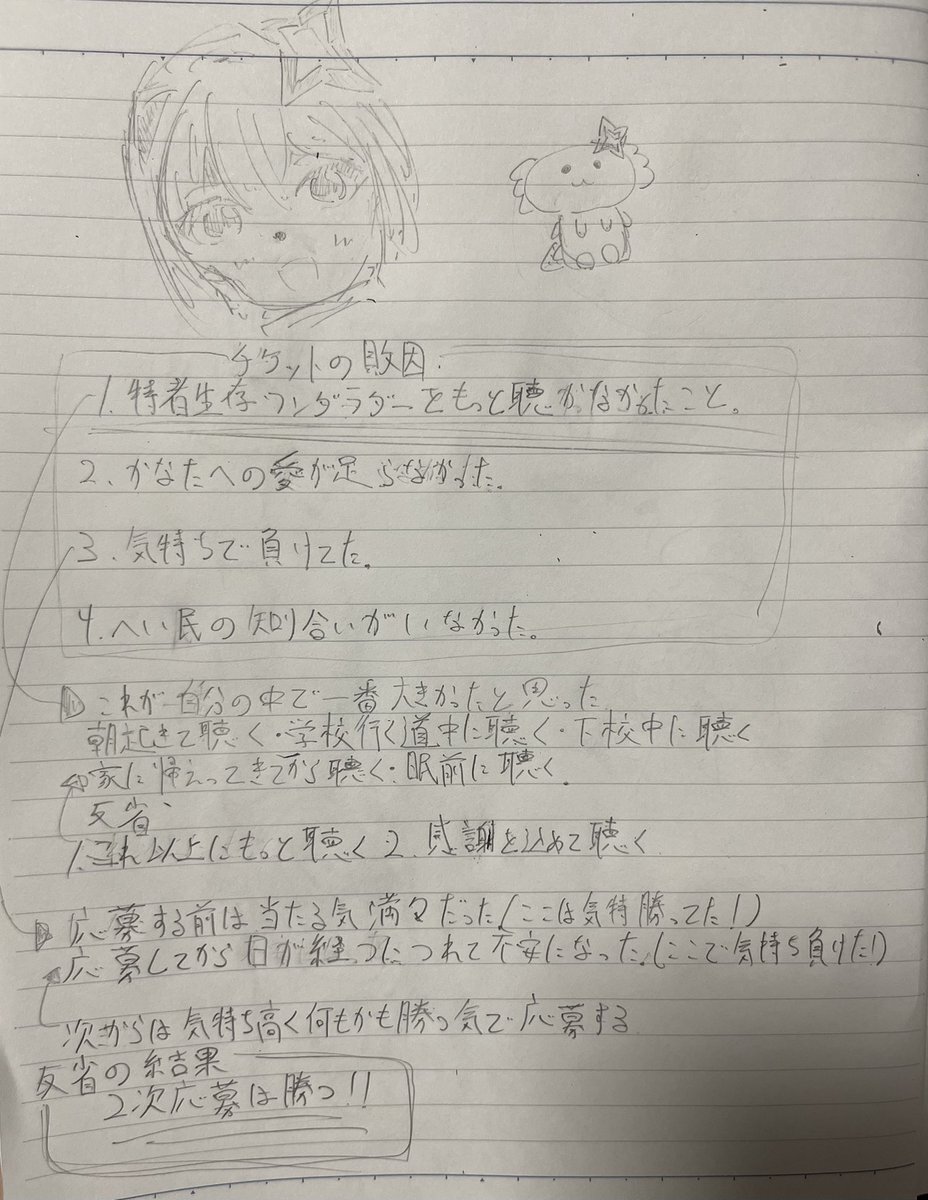 チケットの敗因:
1.特者生存ワンダラダーをもっと聴かなかったこと。
2.かなたへの愛が足らなかった。
3.気持ちで負けてた。
4.へい民の知り合いがいなかった。
これが自分の中で一番大きかったと思った
朝起きて聴く・学校行く道中に聴く・下校中に聴く
家に帰えってきてから聴く・眠前に聴く。
反省
1.これ以上にもっと聴く 2.感謝を込めて聴く
応募する前は当たる気満々だった(ここは気持勝ってた!)
応募してから日が経つたつれて不安になった。(ここで気持ち負けた!)
次からは気持ち高く何もかも勝つ気で応募する
反省の結果
2次応募は勝つ!!